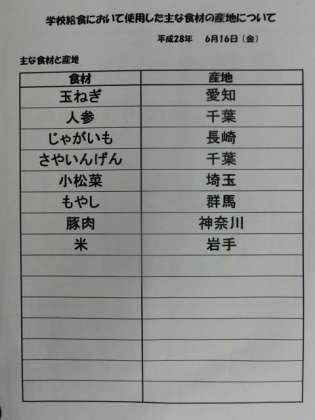 学校給食において使用した主な食材の産地について
平成28年 6月16日（金）
主な食材と産地
食材 産地
玉ねぎ 愛知
人参 千葉
じゃがいも 長崎
さやいんげん 千葉
小松菜 埼玉
もやし 群馬
豚肉 神奈川
米 岩手